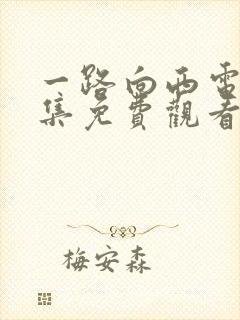 一路向西電
集免費觀看
梅安森